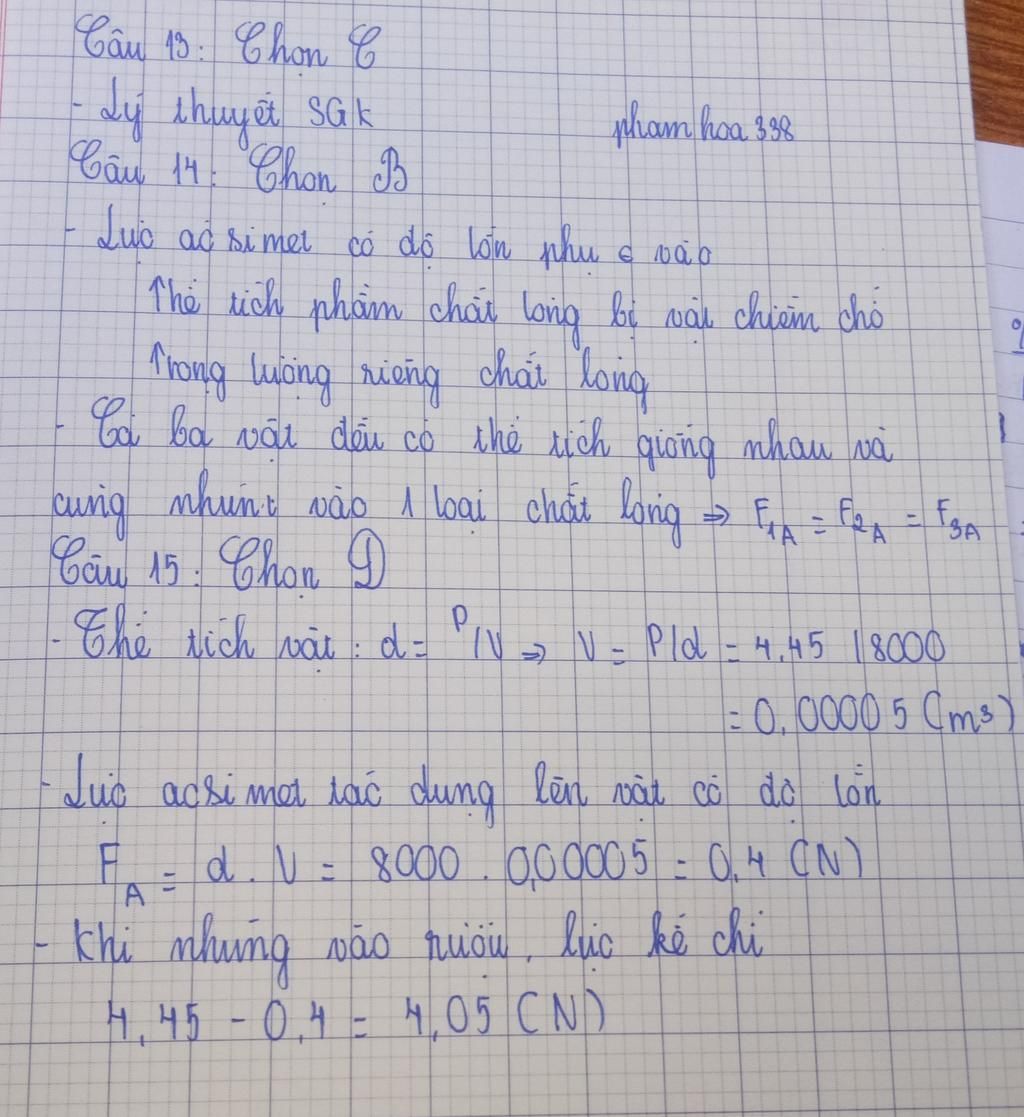 Câu 13: Chọn C
- Lý thuyết SGK
phamhoa338
Câu 14: Chọn B
- Lực acsimet có độ lớn phụ vào
Thể tích phầm chất lỏng bị vật chiếm chỗ
Trọng lượng riêng chất lỏng
- Cả ba vật đều có thể tích giống nhau và
cùng nhúng vào 1 loại chất lỏng => F1A = F2A = F3A
Câu 15: Chọn D
- Thể tích vật: d = P/V => V = P/d = 4,45 / 8000
= 0,00005 (m³)
- Lực acsimet tác dụng lên vật có độ lớn
FA = d . V = 8000 . 0,00005 = 0,4 (N)
- Khi nhúng vào rượu, lực kế chỉ
4,45 - 0,4 = 4,05 (N)